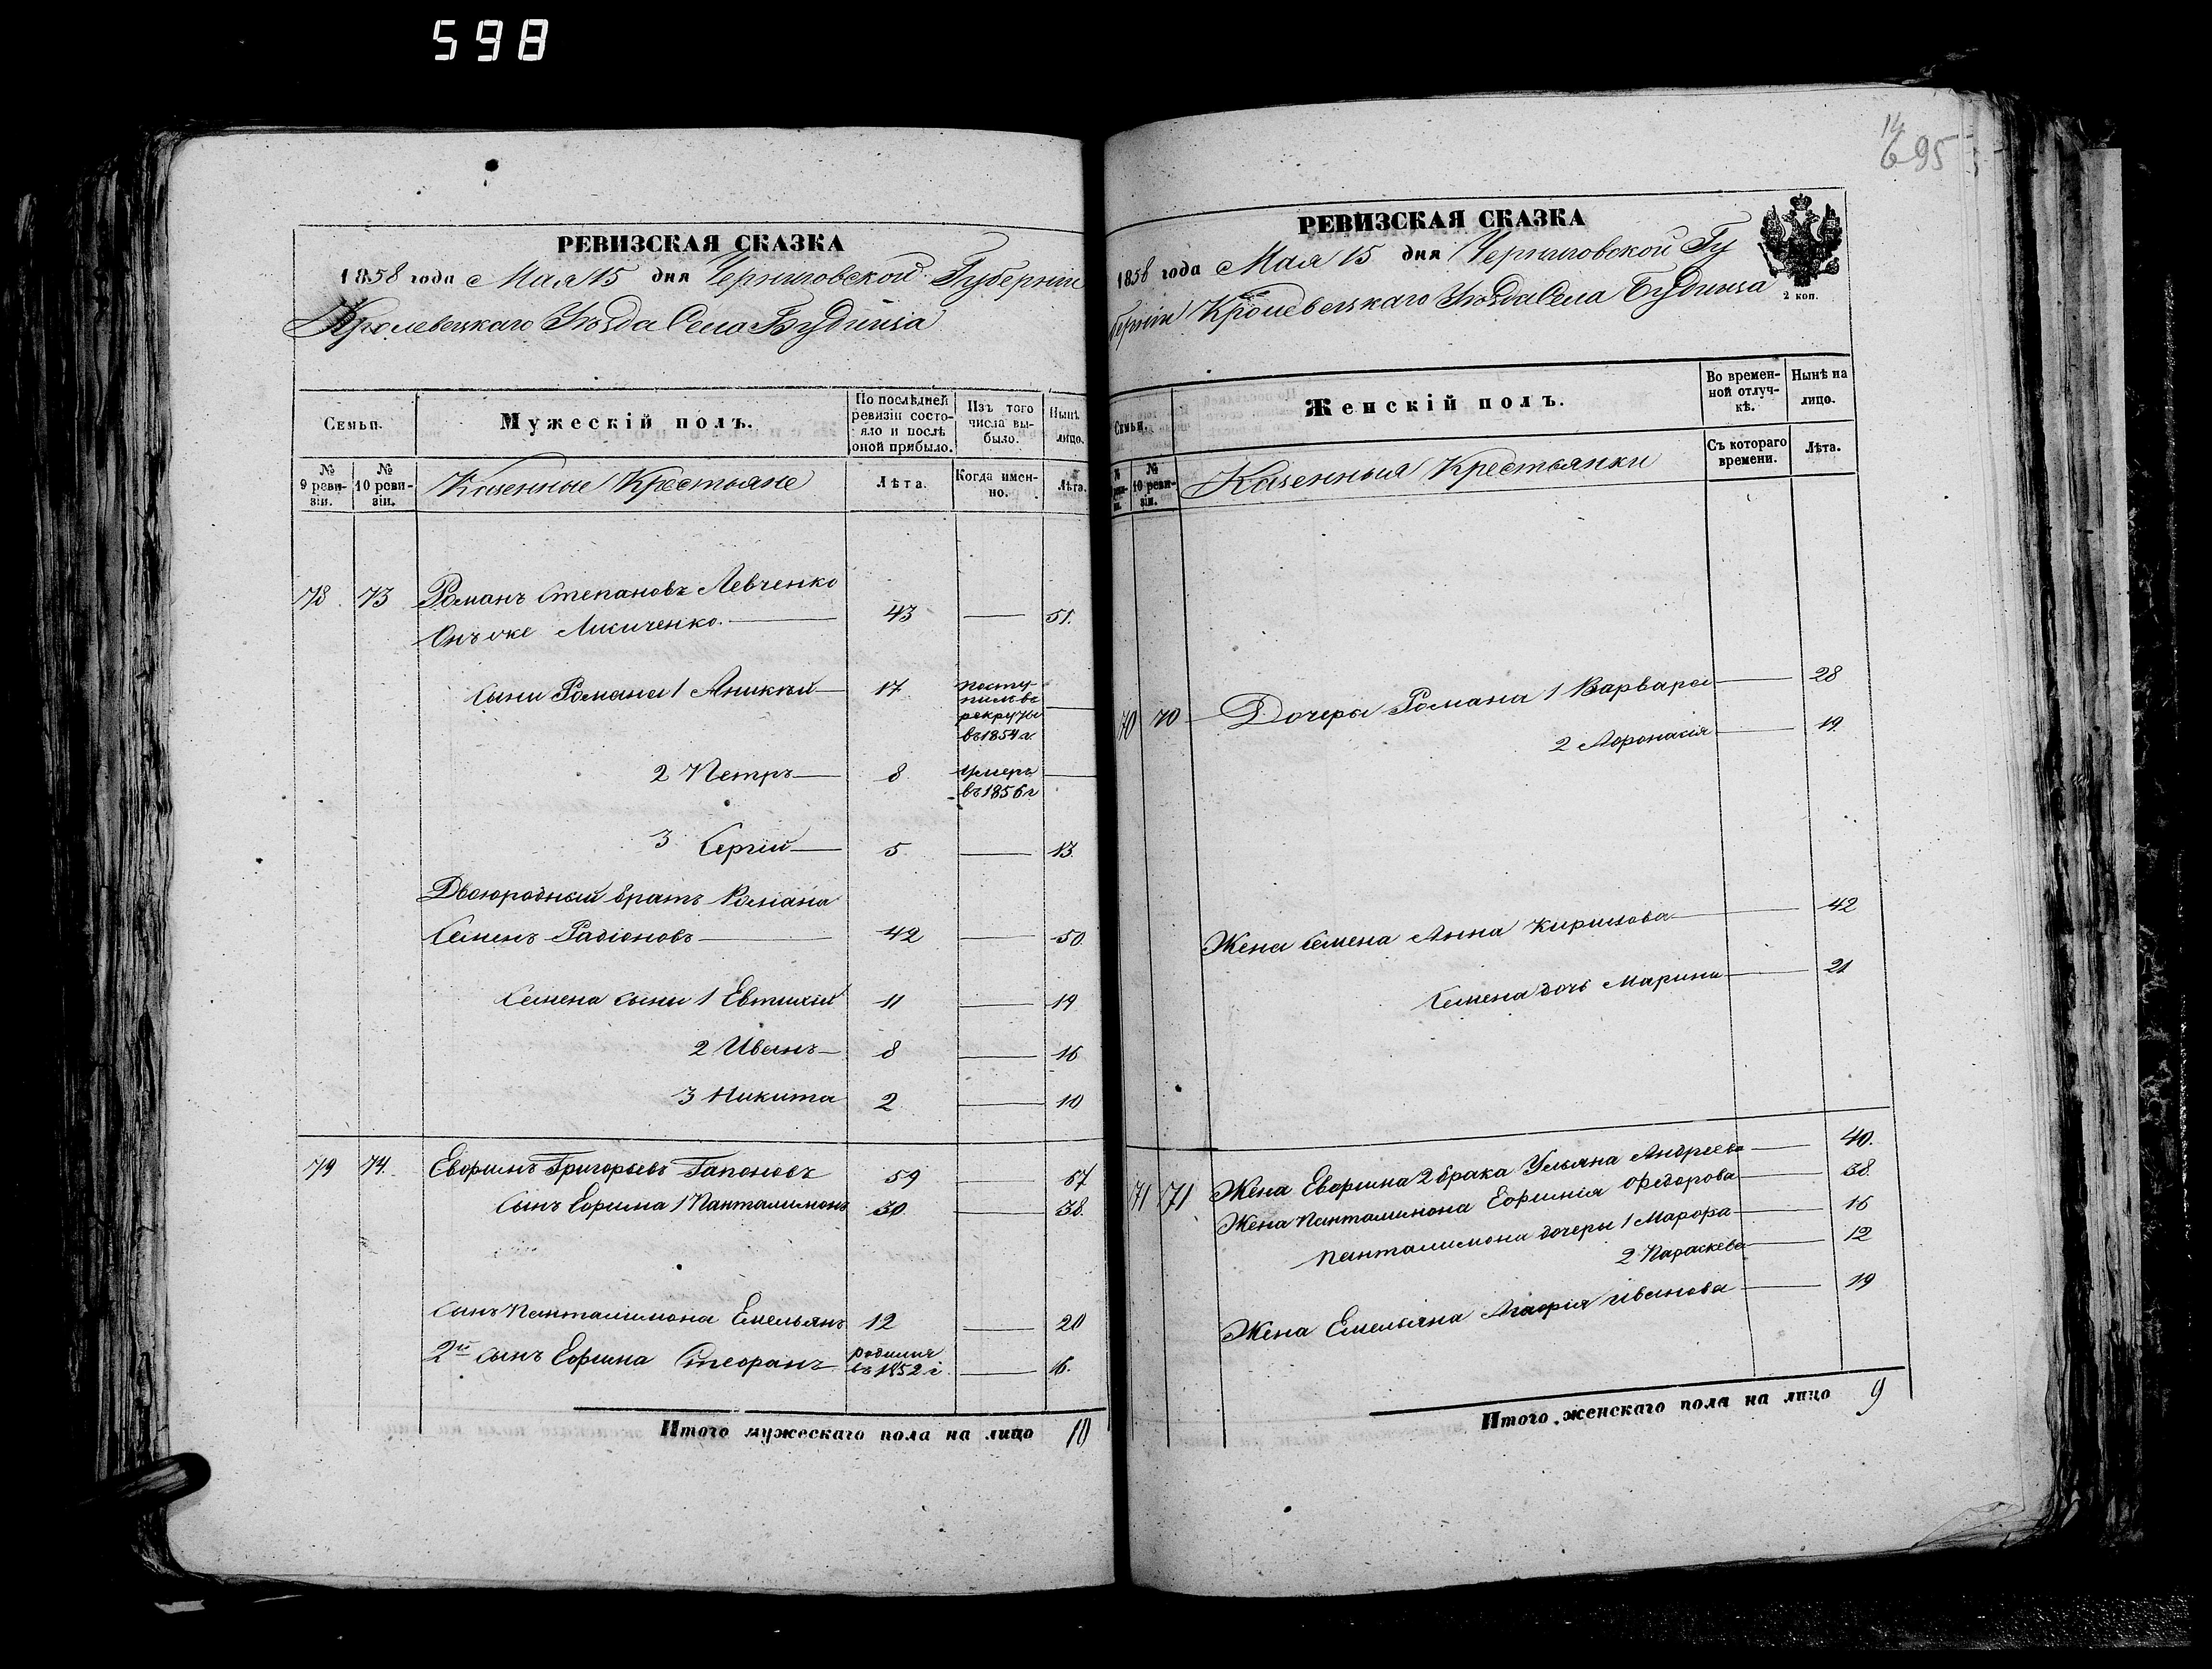 598
РЕВИЗСКАЯ СКАЗКА
1858 года Мая 15 дня Черниговской Губерніи
Кролевецкаго Уѣзда Села Будища
Семьи.
Мужескій полъ.
По послѣдней ревизіи состояло и послѣ оной прибыло.
Изъ того числа выбыло.
Нынѣ
лицо.
№ 9 ревизіи.
№ 10 ревизіи.
Казенные Крестьяне
Лѣта.
Когда именно.
Лѣта.
78 73 Романъ Степановъ Левченко
Онъ же Лисиченко. 43 51.
Сыни Романа 1 Аникій 17 поступилъ въ рекруты въ 1854 г.
2 Петръ 8 умеръ въ 1856 г
3 Сергій 5 13.
Двоюродный братъ Романа
Семенъ Радіоновъ 42 50.
Семена сыни 1 Евтихій 11 19
2 Иванъ 8 16
3 Никита 2 10
79 74. Евфимъ Григорьевъ Гапоновъ 59 67
Сынъ Ефима 1 Панталимонъ 30 38.
Сынъ Панталимона Емельянъ 12 20
2й сынъ Ефима Стефанъ родился въ 1852 г. 16.
Итого мужескаго пола на лицо 10
14
695
РЕВИЗСКАЯ СКАЗКА
1858 года Мая 15 дня Черниговской Гу
берніи Кролевецкаго Уѣзда Села Будища
2 коп.
Семьи.
Женскій полъ.
Во временной отлучкѣ.
Нынѣ на лицо.
№ 10 ревизіи.
Казенныя Крестьянки
Съ котораго времени.
Лѣта.
70 70 Дочери Романа 1 Варвара 28
2 Афонасія 19.
Жена Семена Анна Кирилова 42
Семена дочь Марина 21
71 71 Жена Евфима 2 брака Ульяна Андреева 40.
Жена Панталимона Ефимія Федорова 38.
Панталимона дочери 1 Марфа 16
2 Параскева 12
Жена Емельяна Агафія Иванова 19
Итого женскаго пола на лицо 9